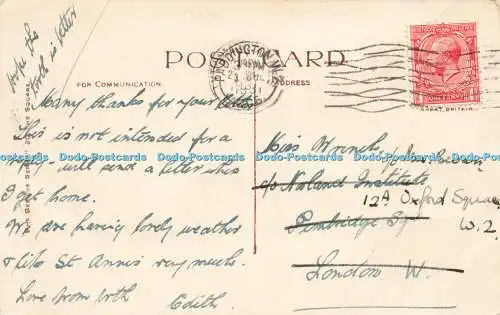 Hope the
tooth is better
POST CARD
FOR COMMUNICATION
ADDRESS
PADDINGTON. W.2
ONE PENNY
Many thanks for your letter
This is not intended for a
will send a letter when
I get home.
We are having lovely weather
& like St Anne's very much.
Love from both
Edith.
Miss Wrench
c/o
c/o Norland Institute
12A Oxford Square
Pembridge Sq
W.2
London W.
Dodo-Postcards Dodo-Postcards Dodo-Postcards Dodo-Postcards